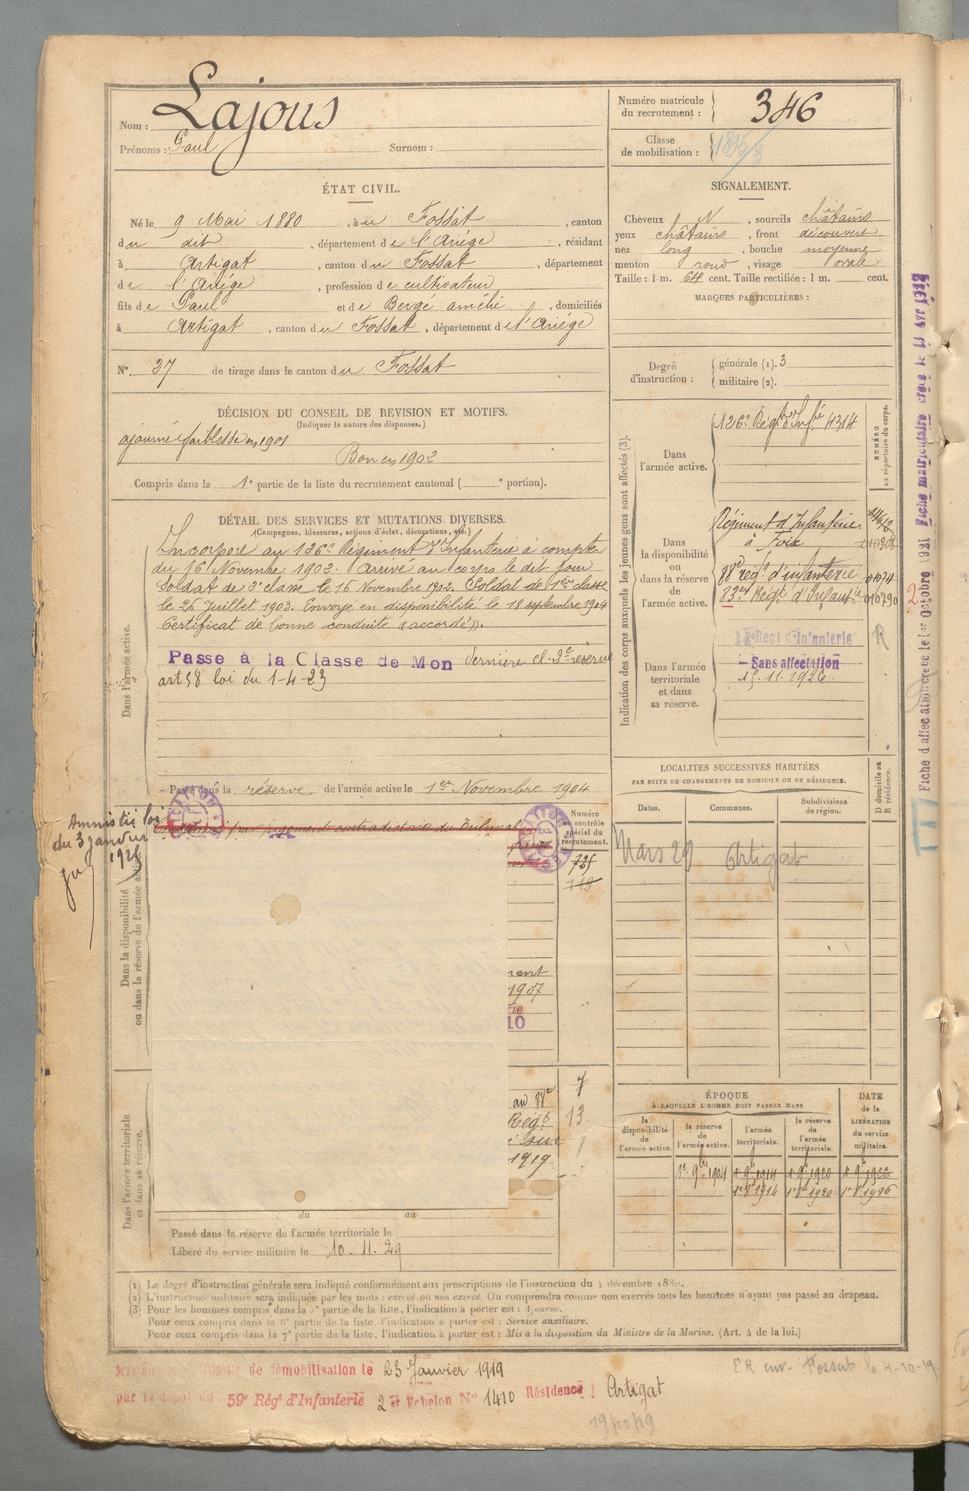 Nom : Lajous
Prénoms : Paul Surnom :
Numéro matricule du recrutement : 346
Classe de mobilisation :
ÉTAT CIVIL.
Né le 9 Mai 1880, à u Fossat, canton
du dit, département de l'Ariége, résidant
à Artigat, canton du Fossat, département
de l'Ariége, profession de cultivateur
fils de Paul et de Bergé améli, domiciliés
à Artigat, canton du Fossat, département de l'Ariége
N° 37 de tirage dans le canton du Fossat
SIGNALEMENT.
Cheveux N, sourcils châtains
yeux châtains, front découvert
nez long, bouche moyenne
menton rond, visage ovale
Taille : 1 m. 64 cent. Taille rectifiée : 1 m. cent.
MARQUES PARTICULIÈRES :
Degré d'instruction : générale (1). 3
militaire (2).
DÉCISION DU CONSEIL DE REVISION ET MOTIFS.
(Indiquer la nature des dispenses.)
ajourné faiblesse en 1901
Bon en 1902
Compris dans la 1e partie de la liste du recrutement cantonal ( e portion).
DÉTAIL DES SERVICES ET MUTATIONS DIVERSES.
(Campagnes, blessures, actions d'éclat, décorations, etc.)
Dans l'armée active.
Incorporé au 126e Régiment d'Infanterie à compter
du 16 Novembre 1902. Arrivé au corps le dit jour
Soldat de 2e classe le 16 Novembre 1902. Soldat de 1ère classe
le 26 Juillet 1903. Envoyé en disponibilité le 18 septembre 1904
Certificat de bonne conduite « accordé ».
Passe à la Classe de Mon dernière cl. 2e réserve
art 58 loi du 1-4-23
Passé dans la réserve de l'armée active le 1er Novembre 1904
Indication des corps auxquels les jeunes gens sont affectés (3).
NUMÉRO au répertoire du corps.
Dans l'armée active.
126e Régt d'Infie 4314
Dans la disponibilité ou dans la réserve de l'armée active.
Régiment d'Infanterie
à Foix
88e régt d'infanterie 01074
Régt d'Infant 010290
Dans l'armée territoriale et dans sa réserve.
Régt d'Infanterie
Sans affectation
15.11.1926
R
Fiche d'affectation créée le 1er Octobre 1921 Fiche matriculaire créée le
Amnistié loi
du 3 janvier
1925
Dans la disponibilité ou dans la réserve de l'armée active
par jugement contradictoire du Tribunal
Numéro contrôle spécial du recrutement.
725
ment
1907
10
Dans l'armée territoriale et dans sa réserve.
au 88e
Régt
1919
7
13
du au
Passé dans la réserve de l'armée territoriale le
Libéré du service militaire le 10.11.29
LOCALITÉS SUCCESSIVES HABITÉES
PAR SUITE DE CHANGEMENTS DE DOMICILE OU DE RÉSIDENCE.
Dates. Communes. Subdivisions de région. D domicile ou R résidence.
Mars 29 Artigat
ÉPOQUE
À LAQUELLE L'HOMME DOIT PASSER DANS
DATE de la LIBÉRATION du service militaire.
la disponibilité de l'armée active. la réserve de l'armée active. l'armée territoriale. la réserve de l'armée territoriale.
1er 9bre 1904 1er 9bre 1914 1er 9bre 1920
(1) Le degré d'instruction générale sera indiqué conformément aux prescriptions de l'instruction du décembre
(2) L'instruction militaire sera indiquée par les mots : exercé ou non exercé. On comprendra comme non exercés tous les hommes n'ayant pas passé au drapeau.
(3) Pour les hommes compris dans la partie de la liste, l'indication à porter est : Ajourné.
Pour ceux compris dans la 6e partie de la liste, l'indication à porter est : Service auxiliaire.
Pour ceux compris dans la 7e partie de la liste, l'indication à porter est : Mis à la disposition du Ministre de la Marine. (Art. 4 de la loi.)
de démobilisation le 23 Janvier 1919
par le dépôt du 59e Régt d'Infanterie 2e Echelon N° 1410 Résidence : Artigat
Fossat le 4-10-19
19/10/19